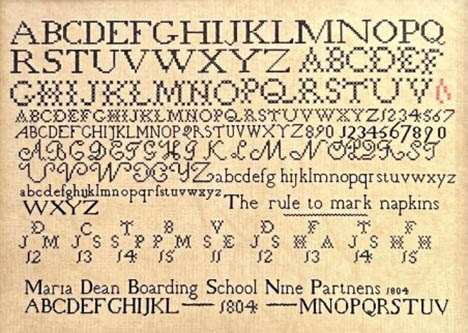 ABCDEFGHIJKLMNOPQ
RSTUVWXYZ ABCDEF
GHIJKLMNOPQRSTUVA
ABCDEFGHIJKLMNOPQRSTUVWXYZ1234567
ABCDEFGHIJKLMNOPQRSTUVWXYZ890 1234567890
ABCDEFGHIJKLMNOPQRST
UVWXYZ abcdefg hijklmnopqrstuvwxyz
abcdefghijklmnopqrſstuvwxyz
WXYZ The rule to mark napkins
F D T B V D F T F
J M J S S P P M S E J S H A J S H H
12 13 14 15 12 13 14 15
Maria Dean Boarding School Nine Partners 1804
ABCDEFGHIJKL — 1804 — MNOPQRSTUV